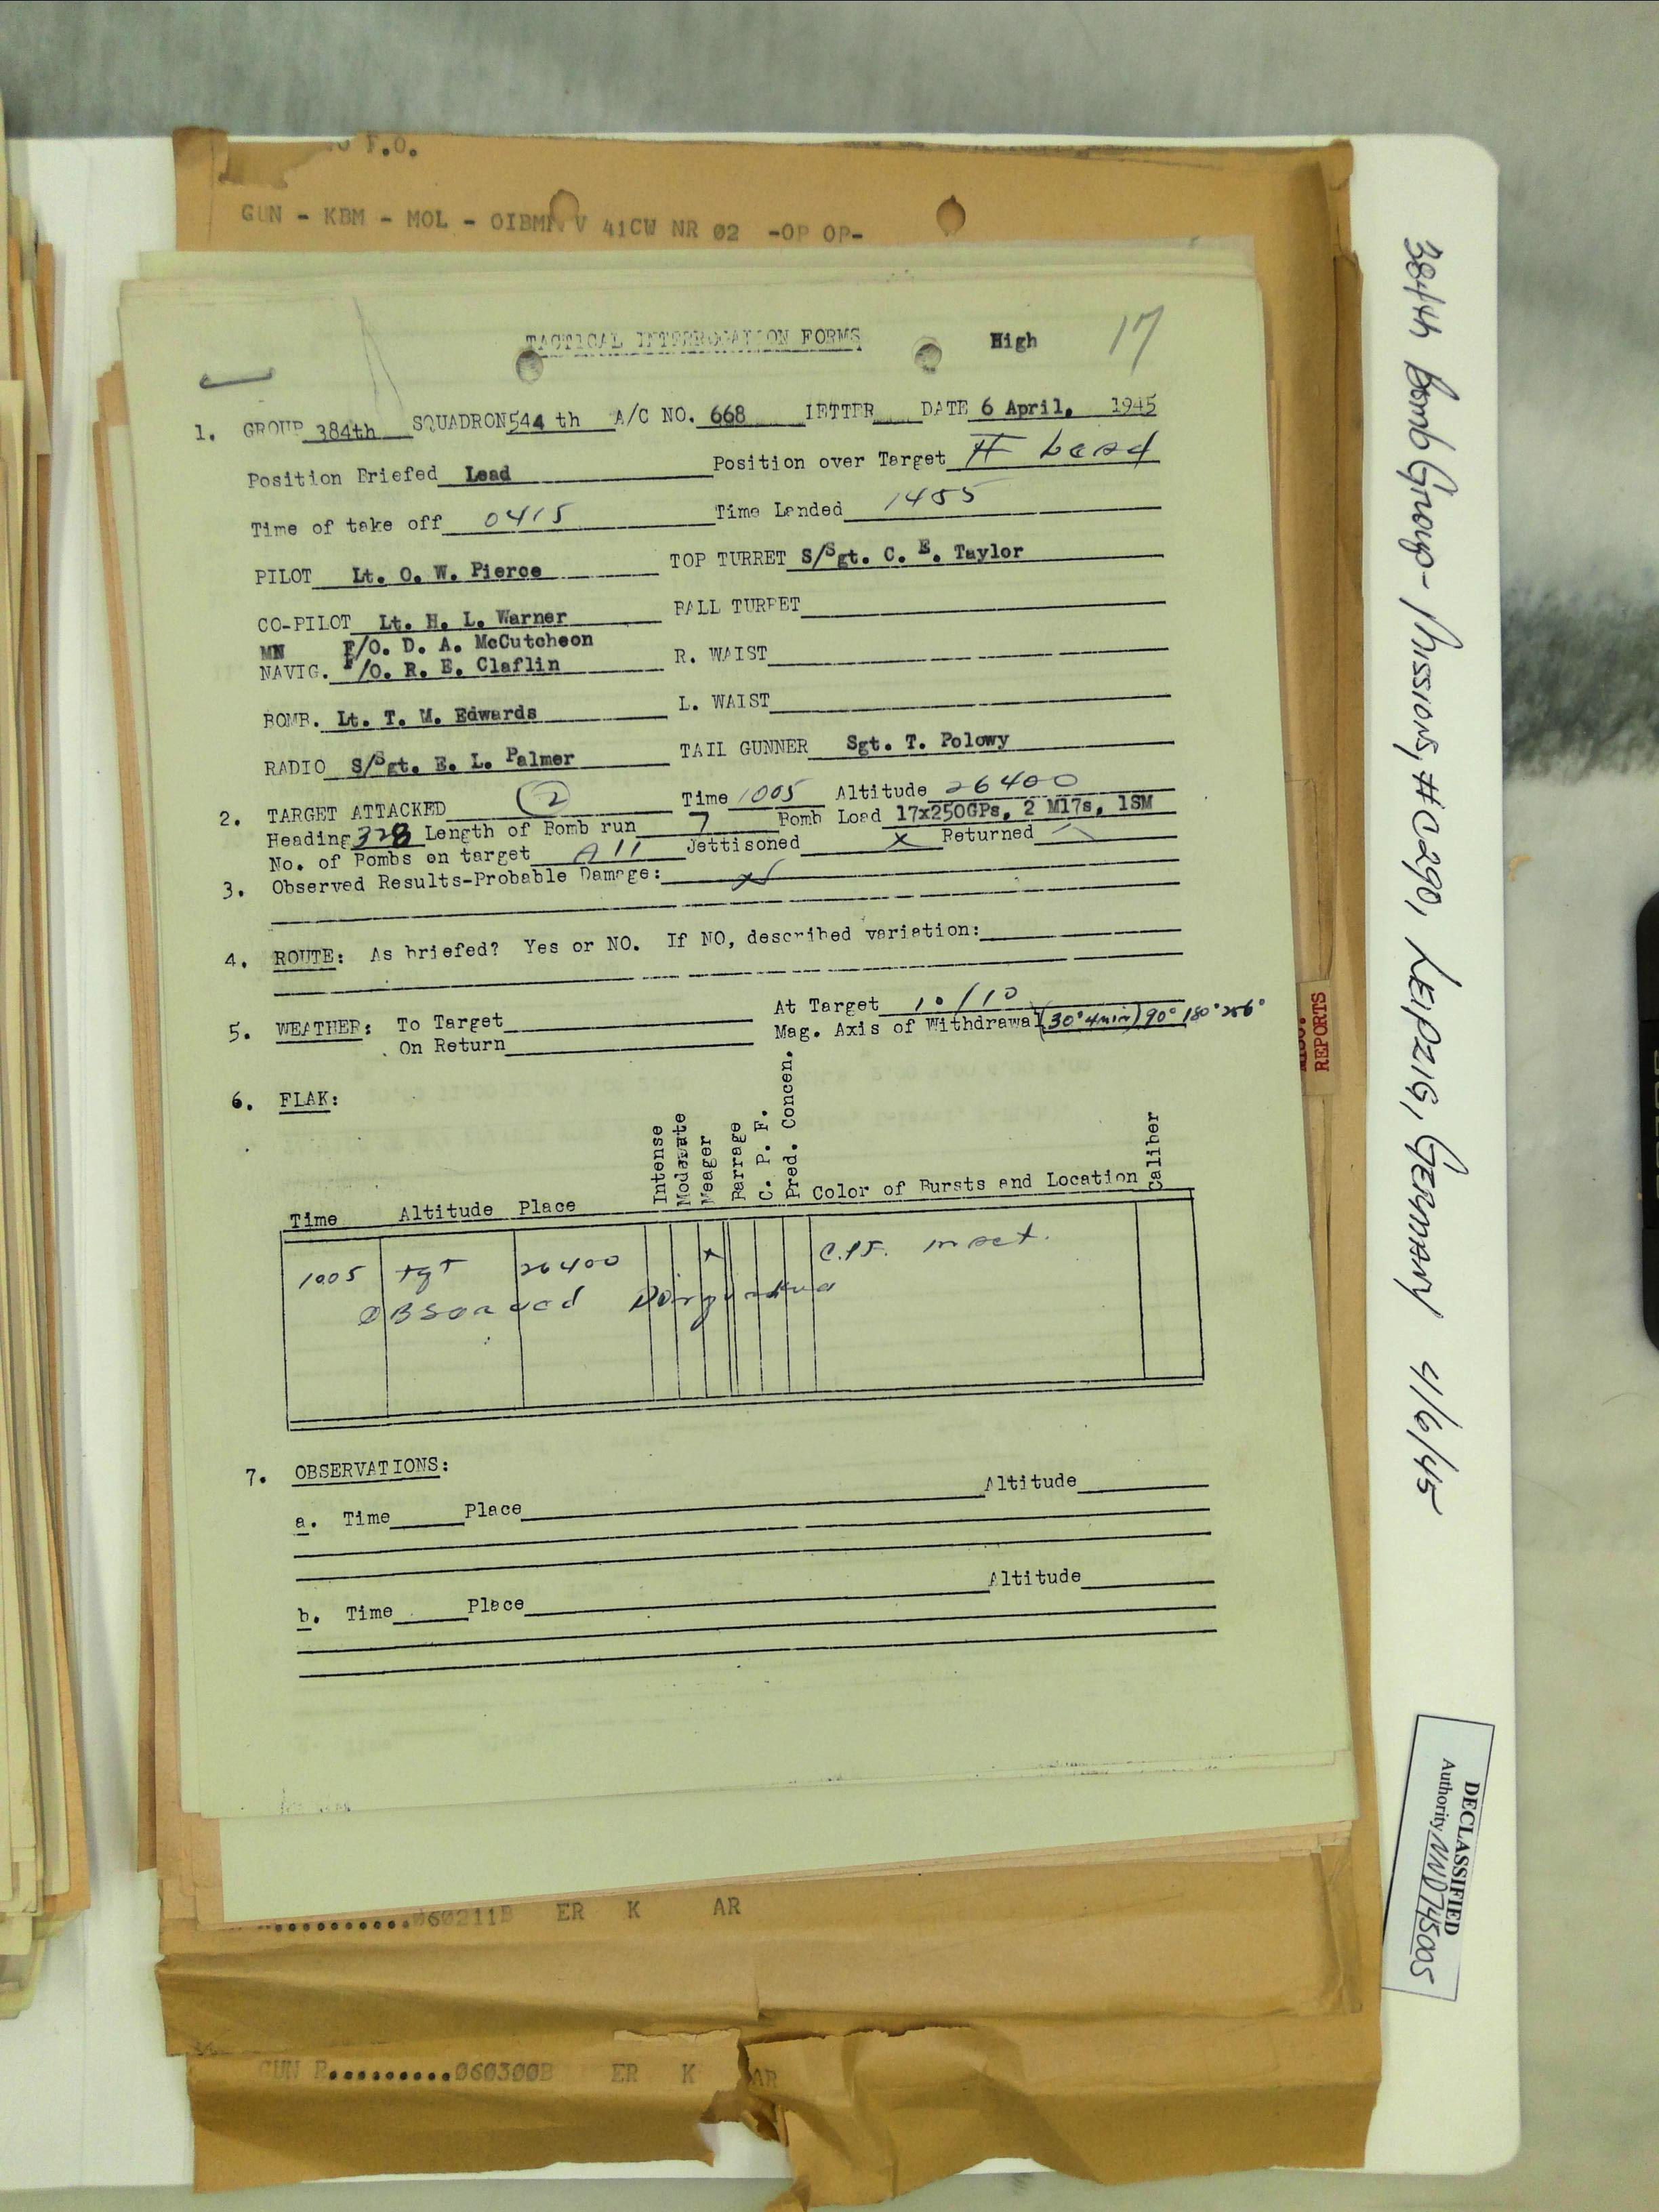 F.O.
GUN - KBM - MOL - OIBMN V 41CW NR 02 -OP OP-
TACTICAL INTERROGATION FORMS High 17
1. GROUP 384th SQUADRON 544 th A/C NO. 668 LETTER DATE 6 April, 1945
Position Briefed Lead Position over Target
Time of take off 0415 Time Landed 1455
PILOT Lt. O. W. Pierce TOP TURRET S/Sgt. C. E. Taylor
CO-PILOT Lt. H. L. Warner BALL TURRET
MN F/O. D. A. McCutcheon
NAVIG. F/O. R. E. Claflin R. WAIST
BOMB. Lt. T. M. Edwards L. WAIST
RADIO S/Sgt. E. L. Palmer TAIL GUNNER Sgt. T. Polowy
2. TARGET ATTACKED 2 Time 1005 Altitude 26400
Heading 328 Length of Bomb run 7 Bomb Load 17x250GPs, 2 M17s, 1SM
No. of Bombs on target All Jettisoned X Returned
3. Observed Results-Probable Damage:
4. ROUTE: As briefed? Yes or NO. If NO, described variation:
5. WEATHER: To Target At Target 10/10
On Return Mag. Axis of Withdrawal (30° 4min) 90° 180° 256°
6. FLAK:
Time Altitude Place Intense Moderate Meager Barrage C. P. F. Pred. Concen. Color of Bursts and Location Caliber
1005 tgt 26400 x C.P.F.
7. OBSERVATIONS:
a. Time Place Altitude
b. Time Place Altitude
060211B ER K AR
GUN R..........060300B ER K AR
MISC. REPORTS
384th Bomb Group - Missions, #C290, LEIPZIG, GERMANY 4/6/45
DECLASSIFIED
Authority NND745005